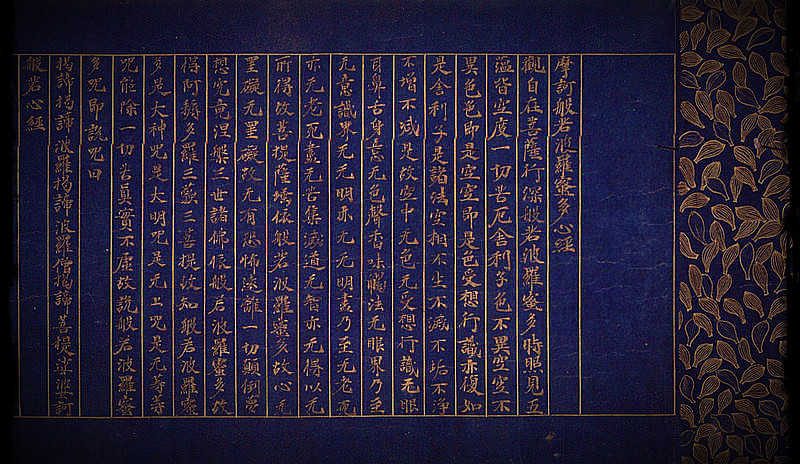 摩訶般若波羅蜜多心經
觀自在菩薩行深般若波羅蜜多時照見五
蘊皆空度一切苦厄舍利子色不異空空不
異色色即是空空即是色受想行識亦復如
是舍利子是諸法空相不生不滅不垢不淨
不增不減是故空中无色无受想行識无眼
耳鼻舌身意无色聲香味觸法无眼界乃至
无意識界无无明亦无无明盡乃至无老死
亦无老死盡无苦集滅道无智亦无得以无
所得故菩提薩埵依般若波羅蜜多故心无
罣礙无罣礙故无有恐怖遠離一切顛倒夢
想究竟涅槃三世諸佛依般若波羅蜜多故
得阿耨多羅三藐三菩提故知般若波羅蜜
多是大神咒是大明咒是无上咒是无等等
咒能除一切苦眞實不虛故說般若波羅蜜
多咒即說咒曰
揭諦揭諦波羅揭諦波羅僧揭諦菩提莎婆訶
般若心經